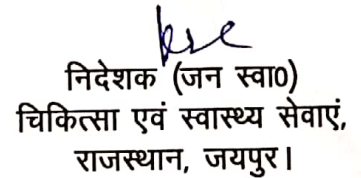 निदेशक (जन स्वा0)
चिकित्सा एवं स्वास्थ्य सेवाएं,
राजस्थान, जयपुर।